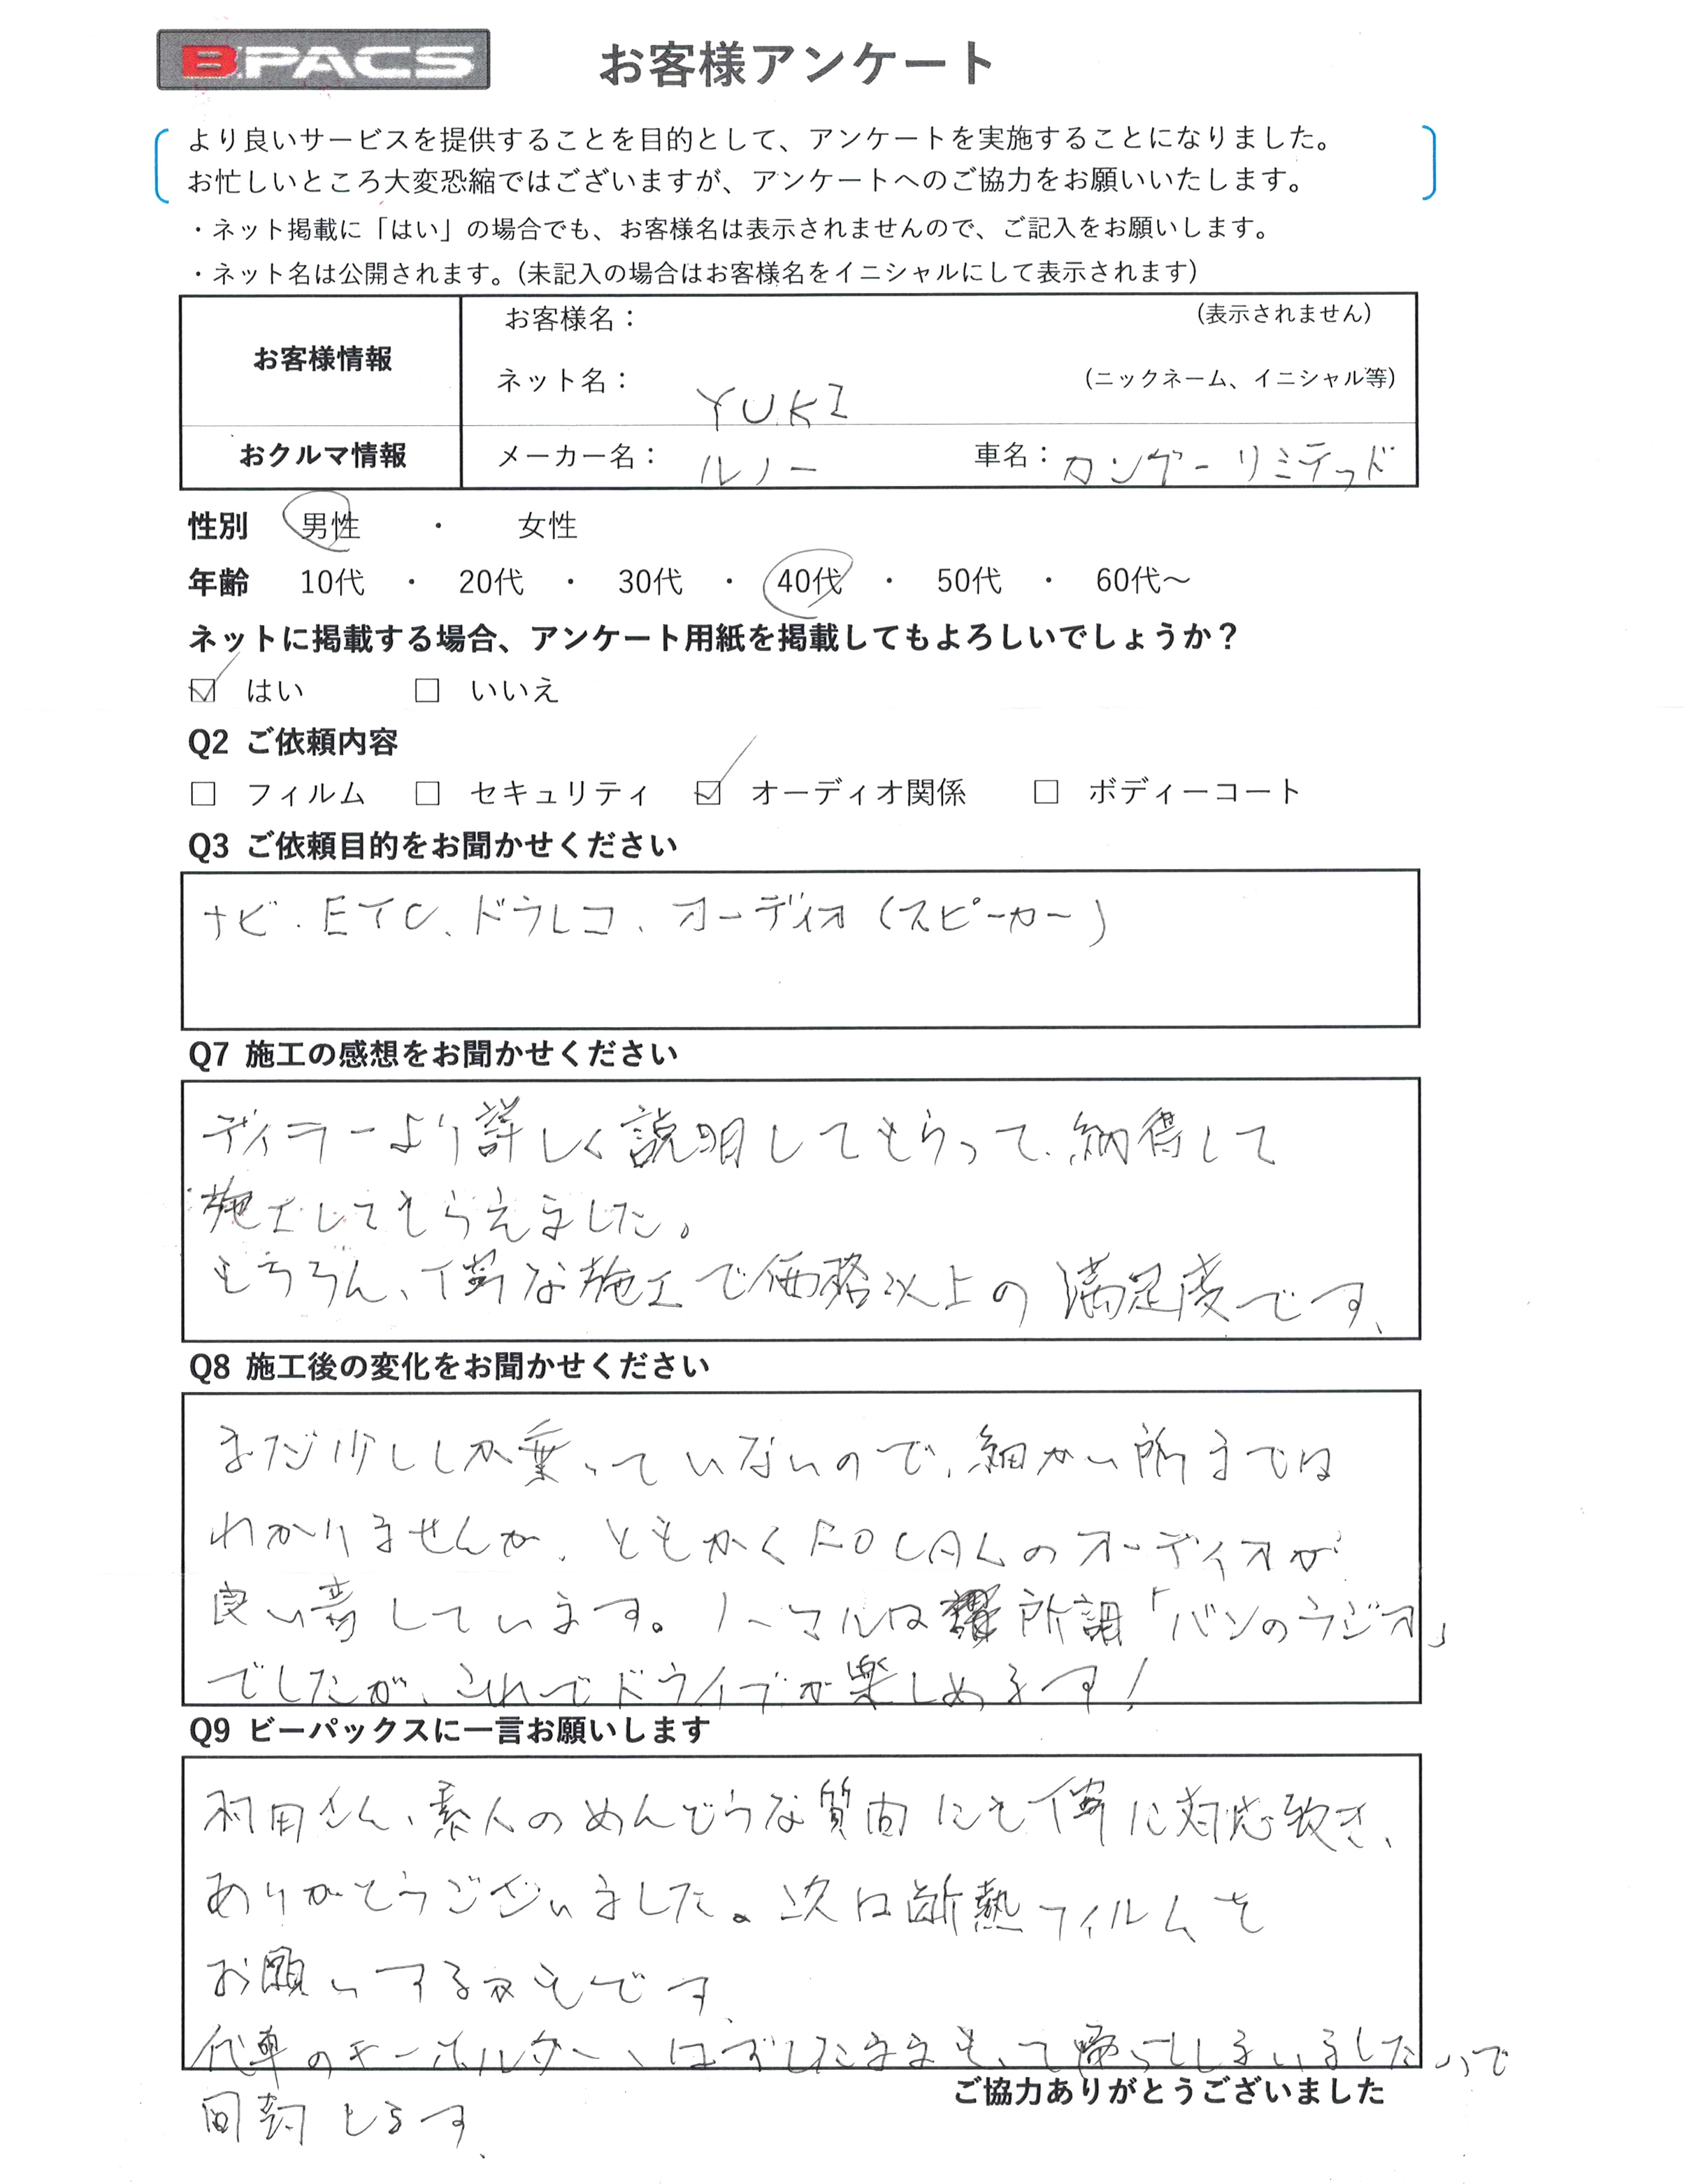 B.PACS お客様アンケート
より良いサービスを提供することを目的として、アンケートを実施することになりました。
お忙しいところ大変恐縮ではございますが、アンケートへのご協力をお願いいたします。
・ネット掲載に「はい」の場合でも、お客様名は表示されませんので、ご記入をお願いします。
・ネット名は公開されます。(未記入の場合はお客様名をイニシャルにして表示されます)
お客様情報
お客様名： (表示されません)
ネット名： YUKI (ニックネーム、イニシャル等)
おクルマ情報 メーカー名： ルノー 車名： カングーリミテッド
性別 男性 ・ 女性
年齢 10代 ・ 20代 ・ 30代 ・ 40代 ・ 50代 ・ 60代～
ネットに掲載する場合、アンケート用紙を掲載してもよろしいでしょうか？
☑ はい □ いいえ
Q2 ご依頼内容
□ フィルム □ セキュリティ ☑ オーディオ関係 □ ボディーコート
Q3 ご依頼目的をお聞かせください
ナビ、ETC、ドラレコ、オーディオ(スピーカー)
Q7 施工の感想をお聞かせください
ディラーより詳しく説明してもらって、納得して
施工してもらえました。
もちろん、丁寧な施工で価格以上の満足度です、
Q8 施工後の変化をお聞かせください
まだ少ししか乗っていないので、細かい所までは
わかりませんが、ともかくFOCALのオーディオが
良い音しています。ノーマルは所謂「バンのラジオ」
でしたが、これでドライブが楽しめます！
Q9 ビーパックスに一言お願いします
さん、素人のめんどうな質問にも丁寧に対応頂き、
ありがとうございました。次は断熱フィルムを
お願いするかもです、
代車のキーホルダー、はずしたままもって帰ってしまいましたので
ご協力ありがとうございました
同封します、